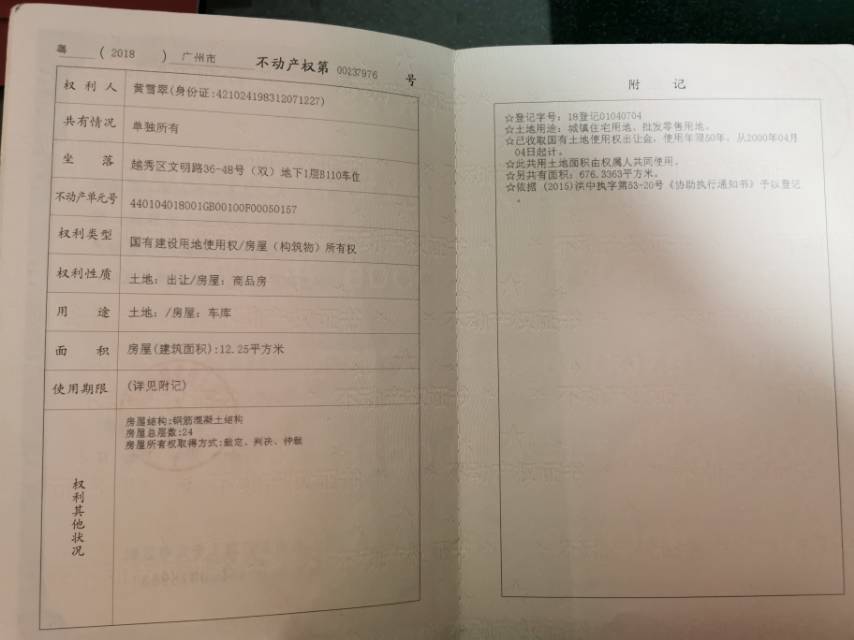 粤 (2018) 广州市 不动产权第 00237976 号
权利人 黄雪翠(身份证:421024198312071227)
共有情况 单独所有
坐落 越秀区文明路36-48号（双）地下1层B110车位
不动产单元号 440104018001GB00100F00050157
权利类型 国有建设用地使用权/房屋（构筑物）所有权
权利性质 土地：出让/房屋：商品房
用途 土地：/房屋：车库
面积 房屋(建筑面积):12.25平方米
使用期限 (详见附记)
权利其他状况
房屋结构:钢筋混凝土结构
房屋总层数:24
房屋所有权取得方式:裁定、判决、仲裁
附记
☆登记字号：18登记01040704
☆土地用途：城镇住宅用地、批发零售用地。
☆已收取国有土地使用权出让金，使用年限50年，从2000年04月
04日起计。
☆此共用土地面积由权属人共同使用。
☆另共有面积：676.3363平方米。
☆依据 (2015)洪中执字第53-20号《协助执行通知书》予以登记
。